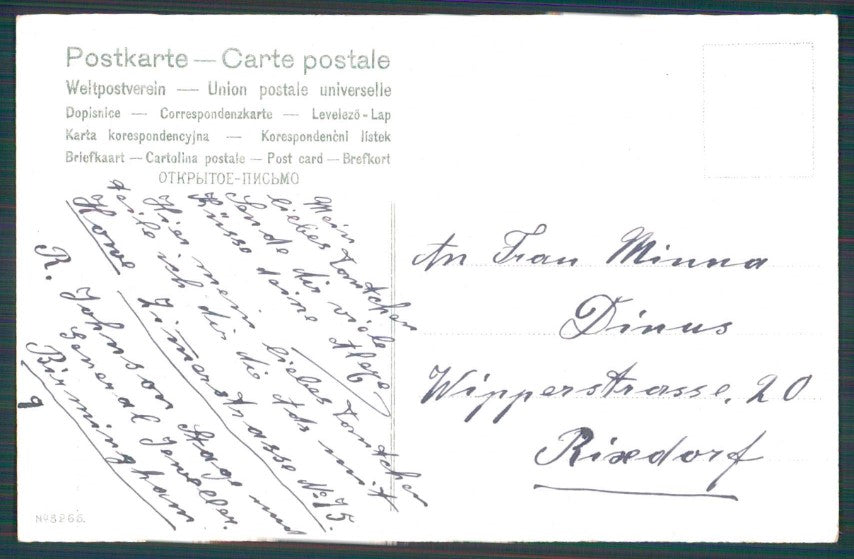 Postkarte — Carte postale
Weltpostverein — Union postale universelle
Dopisnice — Correspondenzkarte — Levelező-Lap
Karta korespondencyjna — Korespondenční lístek
Briefkaart — Cartolina postale — Post card — Brefkort
ОТКРЫТОЕ-ПИСЬМО
Mein
liebes Tantchen
Sende dir viele
Küsse deine
Hier mein liebes Tantchen
teile ich dir die Ads mit
Howe Zimerstrasse No 75.
R. Johnson Stage und
General Jeweller.
Birmingham
9
An Frau Minna
Dinus
Wipperstrasse. 20
Rixdorf
No 8266.